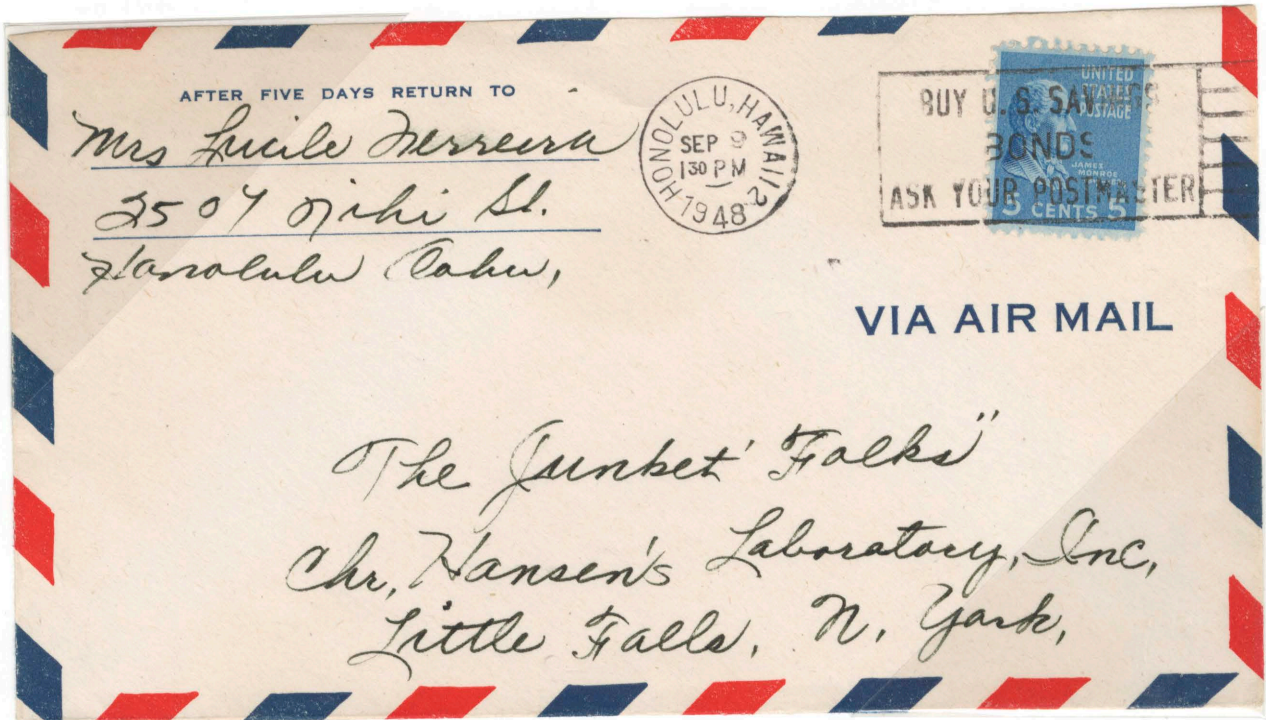 AFTER FIVE DAYS RETURN TO
Mrs Lucile Ferreira
2507 Nihi St.
Honolulu Oahu,
HONOLULU, HAWAII 2
SEP 9
130 PM
1948
BUY U.S. SAVINGS
BONDS
ASK YOUR POSTMASTER
UNITED
STATES
POSTAGE
JAMES
MONROE
5 CENTS 5
VIA AIR MAIL
The "Junket" Folks"
Chr, Hansen's Laboratory, Inc,
Little Falls, N. York,